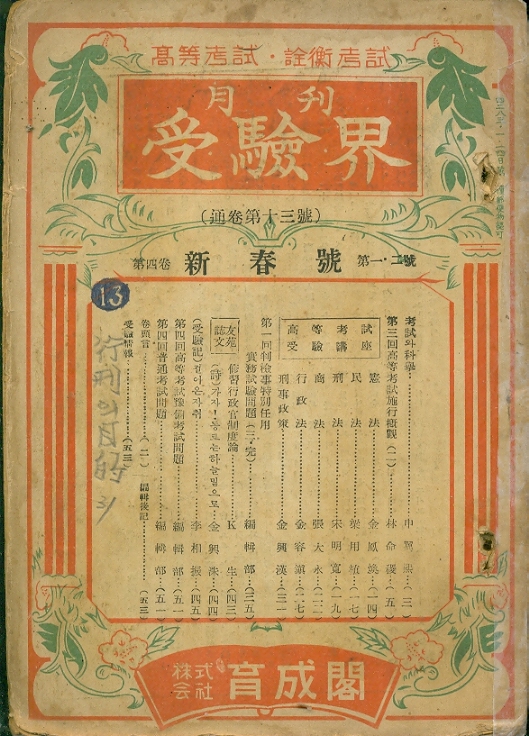 高等考試・詮衡考試
月刊
受驗界
(通卷第十三號)
第四卷 新春號 第一・二號
考試와科學 (三)
第三回高等考試施行槪觀(一) 林命 (五)
高等考試
受驗講座
憲法 金 (一四)
民法 (一七)
刑法 宋明寬 (一九)
商法 張大永 (二二)
行政法 金容 (二七)
刑事政策 金興漢 (三一)
第一回判檢事特別任用
實務試驗問題(二・完) 編輯部 (三五)
友苑
誌文
修習行政官制度論 K生 (四三)
(詩) 金興 (四四)
(受驗記) 걸어온자취 李相 (四五)
第四回高等考試豫備考試問題 編輯部 (五一)
第四回普通考試問題 編輯部 (五一)
卷頭言 (二) 編輯後記 (五三)
受驗情報 (五三)
13
行刑의目的
31
株式會社 育成閣